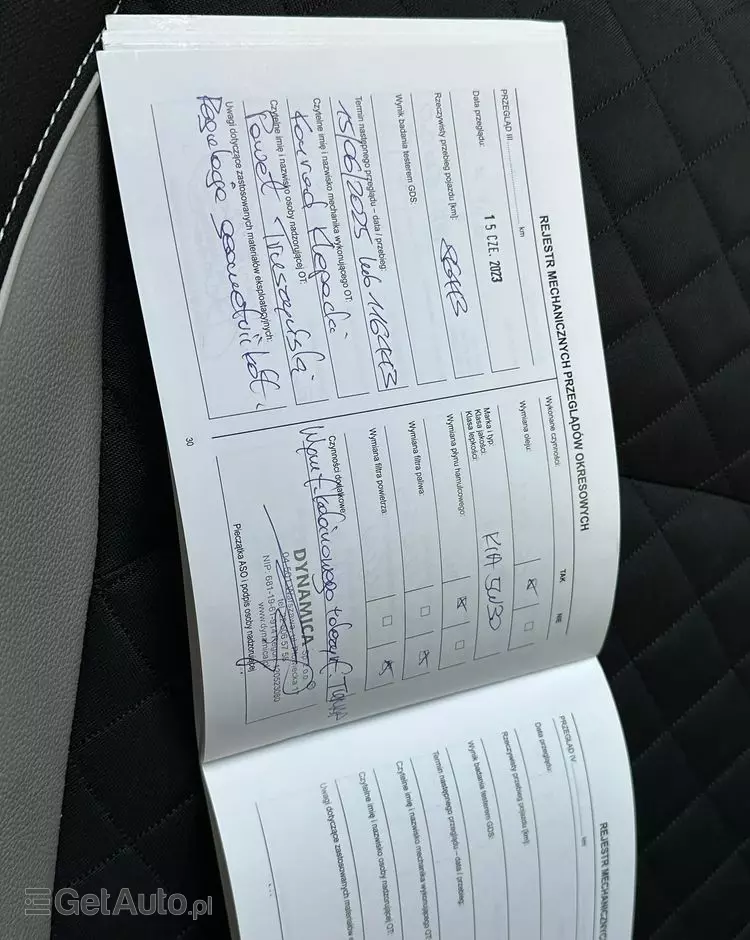 REJESTR MECHANICZNYCH PRZEGLĄDÓW OKRESOWYCH
PRZEGLĄD III km
Data przeglądu:
15 CZE. 2023
Rzeczywisty przebieg pojazdu [km]:
Wynik badania testerem GDS:
Termin następnego przeglądu – data / przebieg:
15/06/2025 lub 116443
Czytelne imię i nazwisko mechanika wykonującego OT:
Konrad
Czytelne imię i nazwisko osoby nadzorującej OT:
Paweł
Uwagi dotyczące zastosowanych materiałów eksploatacyjnych:
Wykonane czynności: TAK NIE
Wymiana oleju:
Marka i typ:
Klasa jakości:
Klasa lepkości:
KIA 5W30
Wymiana płynu hamulcowego:
Wymiana filtra paliwa:
Wymiana filtra powietrza:
Czynności dodatkowe:
DYNAMICA
www.dynamica.pl
Pieczątka ASO i podpis osoby nadzorującej
30
REJESTR MECHANICZNYC
PRZEGLĄD IV km
Data przeglądu:
Rzeczywisty przebieg pojazdu [km]:
Wynik badania testerem GDS:
Termin następnego przeglądu – data / przebieg:
Czytelne imię i nazwisko mechanika wykonującego OT:
Czytelne imię i nazwisko osoby nadzorującej OT:
Uwagi dotyczące zastosowanych materiałów
GetAuto.pl